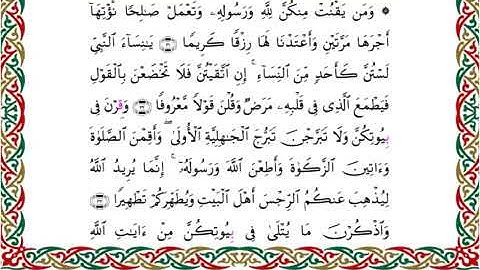 ۞ وَمَن يَقْنُتْ مِنكُنَّ لِلَّهِ وَرَسُولِهِۦ وَتَعْمَلْ صَٰلِحًا نُّؤْتِهَآ
أَجْرَهَا مَرَّتَيْنِ وَأَعْتَدْنَا لَهَا رِزْقًا كَرِيمًا ٣١ يَٰنِسَآءَ ٱلنَّبِيِّ
لَسْتُنَّ كَأَحَدٍ مِّنَ ٱلنِّسَآءِ ۚ إِنِ ٱتَّقَيْتُنَّ فَلَا تَخْضَعْنَ بِٱلْقَوْلِ
فَيَطْمَعَ ٱلَّذِى فِى قَلْبِهِۦ مَرَضٌ وَقُلْنَ قَوْلًا مَّعْرُوفًا ٣٢ وَقِرْنَ فِى
بِيُوتِكُنَّ وَلَا تَبَرَّجْنَ تَبَرُّجَ ٱلْجَٰهِلِيَّةِ ٱلْأُولَىٰ ۖ وَأَقِمْنَ ٱلصَّلَوٰةَ
وَءَاتِينَ ٱلزَّكَوٰةَ وَأَطِعْنَ ٱللَّهَ وَرَسُولَهُۥٓ ۚ إِنَّمَا يُرِيدُ ٱللَّهُ
لِيُذْهِبَ عَنكُمُ ٱلرِّجْسَ أَهْلَ ٱلْبَيْتِ وَيُطَهِّرَكُمْ تَطْهِيرًا ٣٣
وَٱذْكُرْنَ مَا يُتْلَىٰ فِى بِيُوتِكُنَّ مِنْ ءَايَٰتِ ٱللَّهِ